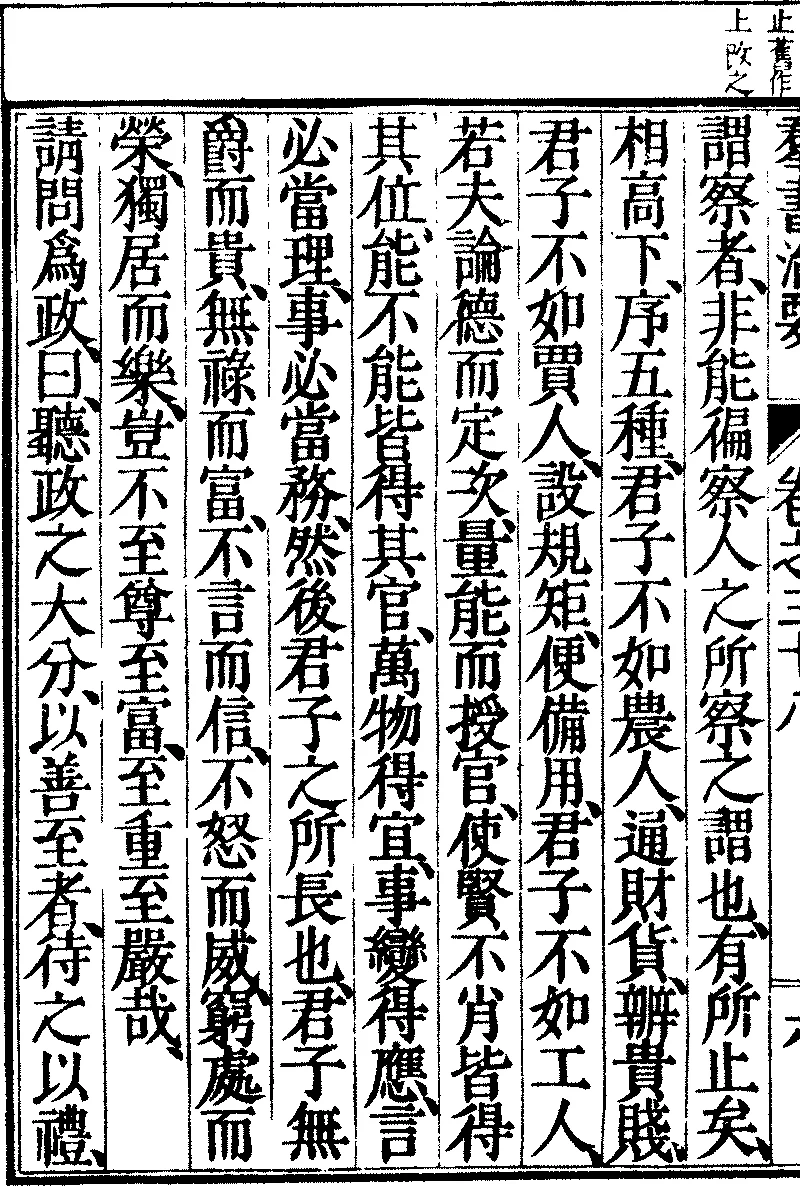 止舊作
上改之
群書治要 卷之三十八 六
謂察者、非能徧察人之所察之謂也、有所止矣、
相高下、序五種、君子不如農人、通財貨、辨貴賤、
君子不如賈人、設規矩、便備用、君子不如工人、
若夫論德而定次、量能而授官、使賢不肖皆得
其位、能不能皆得其官、萬物得宜、事變得應、言
必當理、事必當務、然後君子之所長也、君子無
爵而貴、無祿而富、不言而信、不怒而威、窮處而
榮、獨居而樂、豈不至尊至富、至重至嚴哉、
請問爲政、曰、聽政之大分、以善至者、待之以禮、